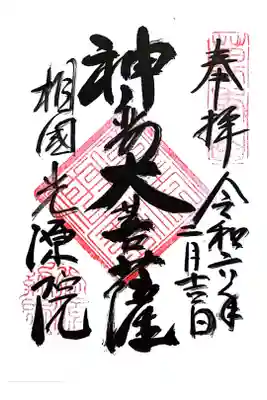 奉拝
令和六年
二月吉日
神変大菩薩
相國光源院